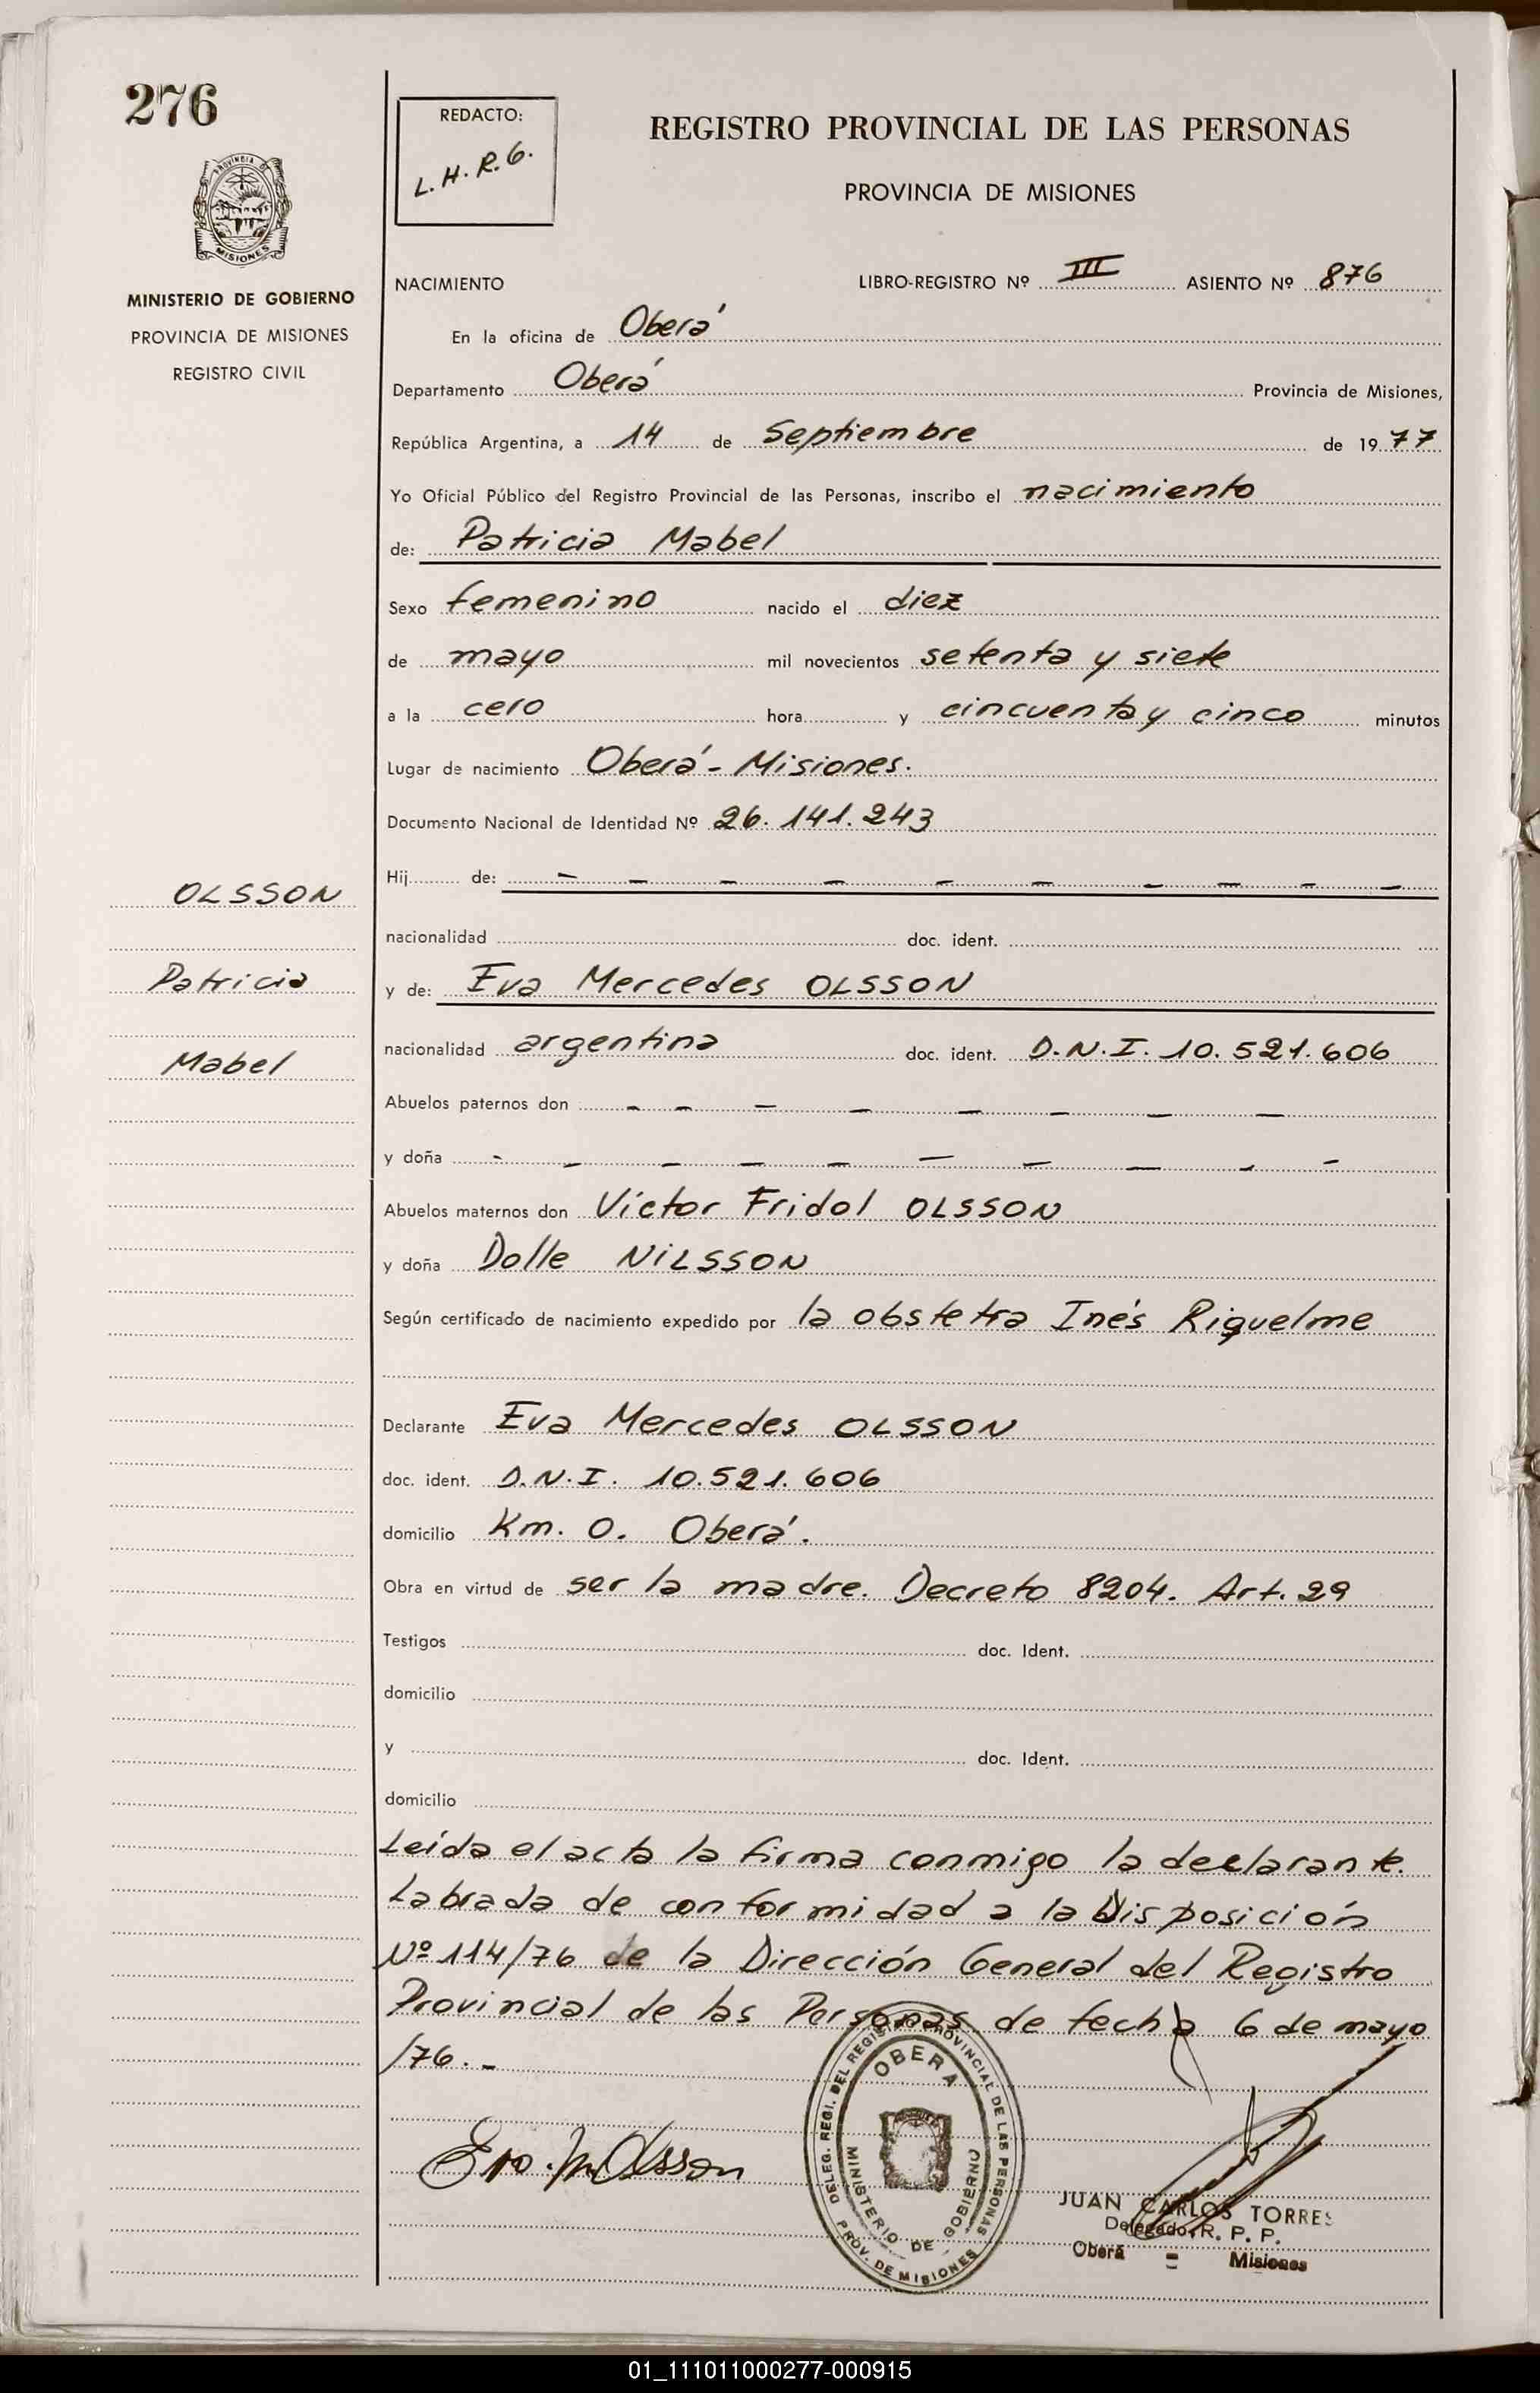 276
REDACTO:
L. H. R. G.
REGISTRO PROVINCIAL DE LAS PERSONAS
PROVINCIA DE MISIONES
MISIONES
MINISTERIO DE GOBIERNO
PROVINCIA DE MISIONES
REGISTRO CIVIL
NACIMIENTO LIBRO-REGISTRO Nº III ASIENTO Nº 876
En la oficina de Oberá
Departamento Oberá Provincia de Misiones,
República Argentina, a 14 de Septiembre de 1977
Yo Oficial Público del Registro Provincial de las Personas, inscribo el nacimiento
de: Patricia Mabel
Sexo femenino nacido el diez
de mayo mil novecientos setenta y siete
a la cero hora y cincuenta y cinco minutos
Lugar de nacimiento Oberá - Misiones.
Documento Nacional de Identidad Nº 26.141.243
Hij de: – – – – – – – – – –
OLSSON
nacionalidad doc. ident.
Patricia
y de: Eva Mercedes OLSSON
Mabel
nacionalidad argentina doc. ident. D.N.I. 10.521.606
Abuelos paternos don – – – – – – – –
y doña – – – – – – – – – –
Abuelos maternos don Víctor Fridol OLSSON
y doña Dolle NiLSSON
Según certificado de nacimiento expedido por la obstetra Inés Riquelme
Declarante Eva Mercedes OLSSON
doc. ident. D.N.I. 10.521.606
domicilio Km. 0. Oberá.
Obra en virtud de ser la madre. Decreto 8204. Art. 29
Testigos doc. Ident.
domicilio
y doc. Ident.
domicilio
Leída el acta la firma conmigo la declarante.
Labrada de conformidad a la Disposición
Nº 114/76 de la Dirección General del Registro
Provincial de las Personas de fecha 6 de mayo
/76. -
Eva. M. Olsson
DELEG. REGI. DEL REGISTRO PROVINCIAL DE LAS PERSONAS
OBERA
MINISTERIO DE GOBIERNO
PROV. DE MISIONES
JUAN CARLOS TORRES
Delegado R. P. P.
Oberá = Misiones
01_111011000277-000915